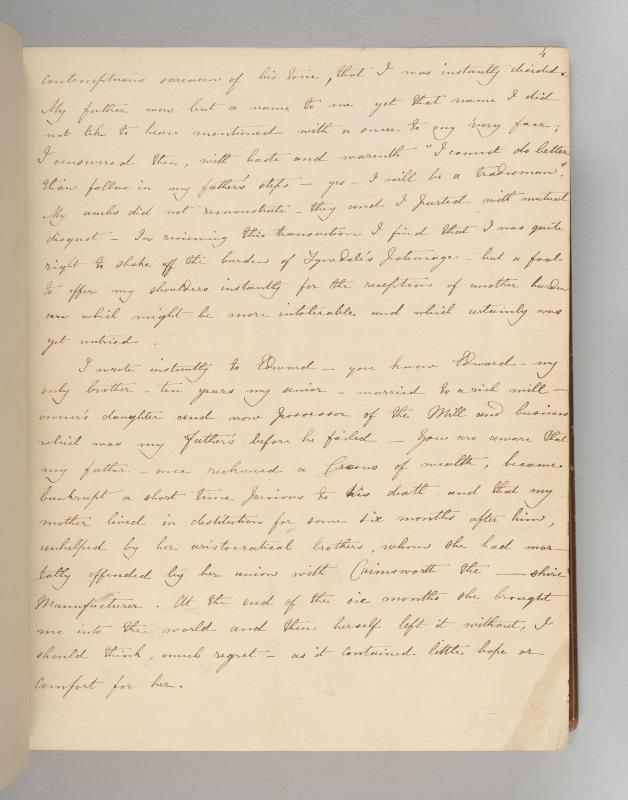 4
contemptuous sarcasm of his tone, that I was instantly decided.
My father was but a name to me – yet that name I did
not like to hear mentioned with a sneer to my very face;
I answered then, with haste and warmth "I cannot do better
than follow in my father's steps – yes – I will be a tradesman".
My uncles did not remonstrate – they and I parted with mutual
disgust – In reviewing this transaction I find that I was quite
right to shake off the burden of Tynedale's Patronage – but a fool
to offer my shoulders instantly for the reception of another burden
one which might be more intolerable and which certainly was
yet untried.
I wrote instantly to Edward – you know Edward – my
only brother – ten years my senior – married to a rich mill-
owner's daughter and now possessor of the Mill and business
which was my father's before he failed – You are aware that
my father – once reckoned a Crœsus of wealth, became
bankrupt a short time previous to his death and that my
mother lived in destitution for some six months after him,
unhelped by her aristocratical brothers, whom she had mor-
tally offended by her union with Crimsworth the —— shire
Manufacturer. At the end of the six months she brought
me into the world and then herself left it without, I
should think, much regret – as it contained little hope or
comfort for her.